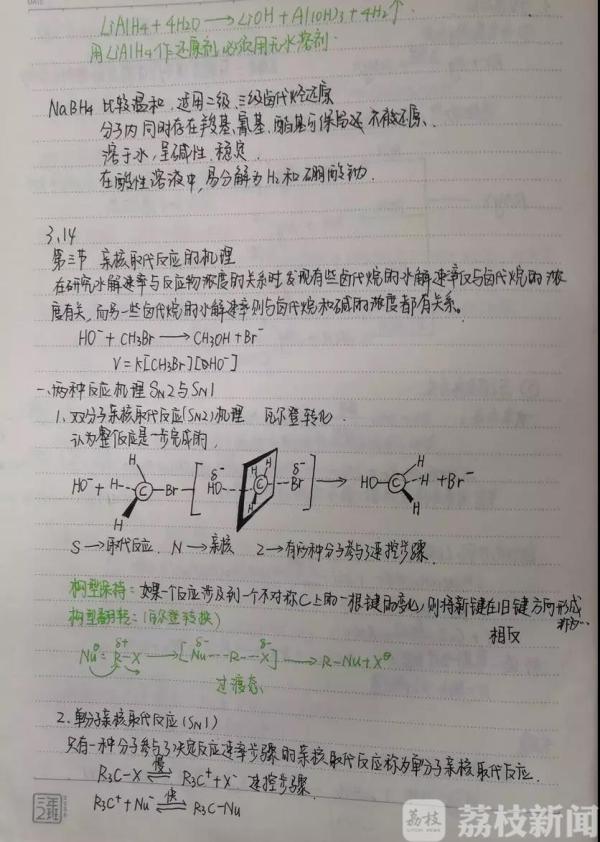 LiAlH4 + 4H2O → LiOH + Al(OH)3 + 4H2↑
用LiAlH4作还原剂,必须用无水溶剂.
NaBH4 比较温和,适用二级、三级卤代烃还原
分子内同时存在羧基、氰基、酯基可保留还不被还原、
溶于水,呈碱性,稳定.
在酸性溶液中,易分解为H2和硼酸钠.
3.14
第三节 亲核取代反应的机理
在研究水解速率与反应物浓度的关系时发现有些卤代烷的水解速率仅与卤代烷的浓
度有关,而另一些卤代烷的水解速率则与卤代烷和碱的浓度都有关系。
HO⁻ + CH3Br → CH3OH + Br⁻
V = k[CH3Br][OHO⁻]
一、两种反应机理 SN2与SN1
1、双分子亲核取代反应(SN2)机理 瓦尔登转化.
认为整个反应是一步完成的,
HO⁻ + H C H H Br [HO δ⁻ H C H H Br δ⁻] → HO C H H H + Br⁻
S → 取代反应. N → 亲核 2 → 有两种分子参与了速控步骤.
构型保持: 如果一个反应涉及到一个不对称C上的一根键的变化,则将新键在旧键方向形成
构型翻转: (瓦尔登转换) 相反
Nu⊖: R δ⁺ X → [Nu δ⁻ --- R --- X δ⁻] → R-Nu + X⊖
过渡态
2、单分子亲核取代反应(SN1)
只有一种分子参与了决定反应速率步骤的亲核取代反应称为单分子亲核取代反应.
R3C-X ⇌ 慢 R3C⁺ + X⁻ 速控步骤
R3C⁺ + Nu⁻ ⇌ 快 R3C-Nu
荔枝
荔枝新闻